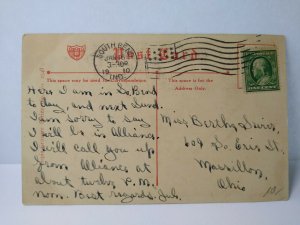 SOUTH BEND
JAN 15
3-PM
1910
IND.
Post Card
This space may be used for correspondence
This space is for the Address Only.
ONE CENT
Here I am in So Bend
to day, and next Sund.
I am sorry to say
I will be in Alliance.
I will call you up
from Alliance at
about twelve P.M.
noon. Best regards, Jul.
Miss Bertha
So. Erie St.
Massillon,
Ohio